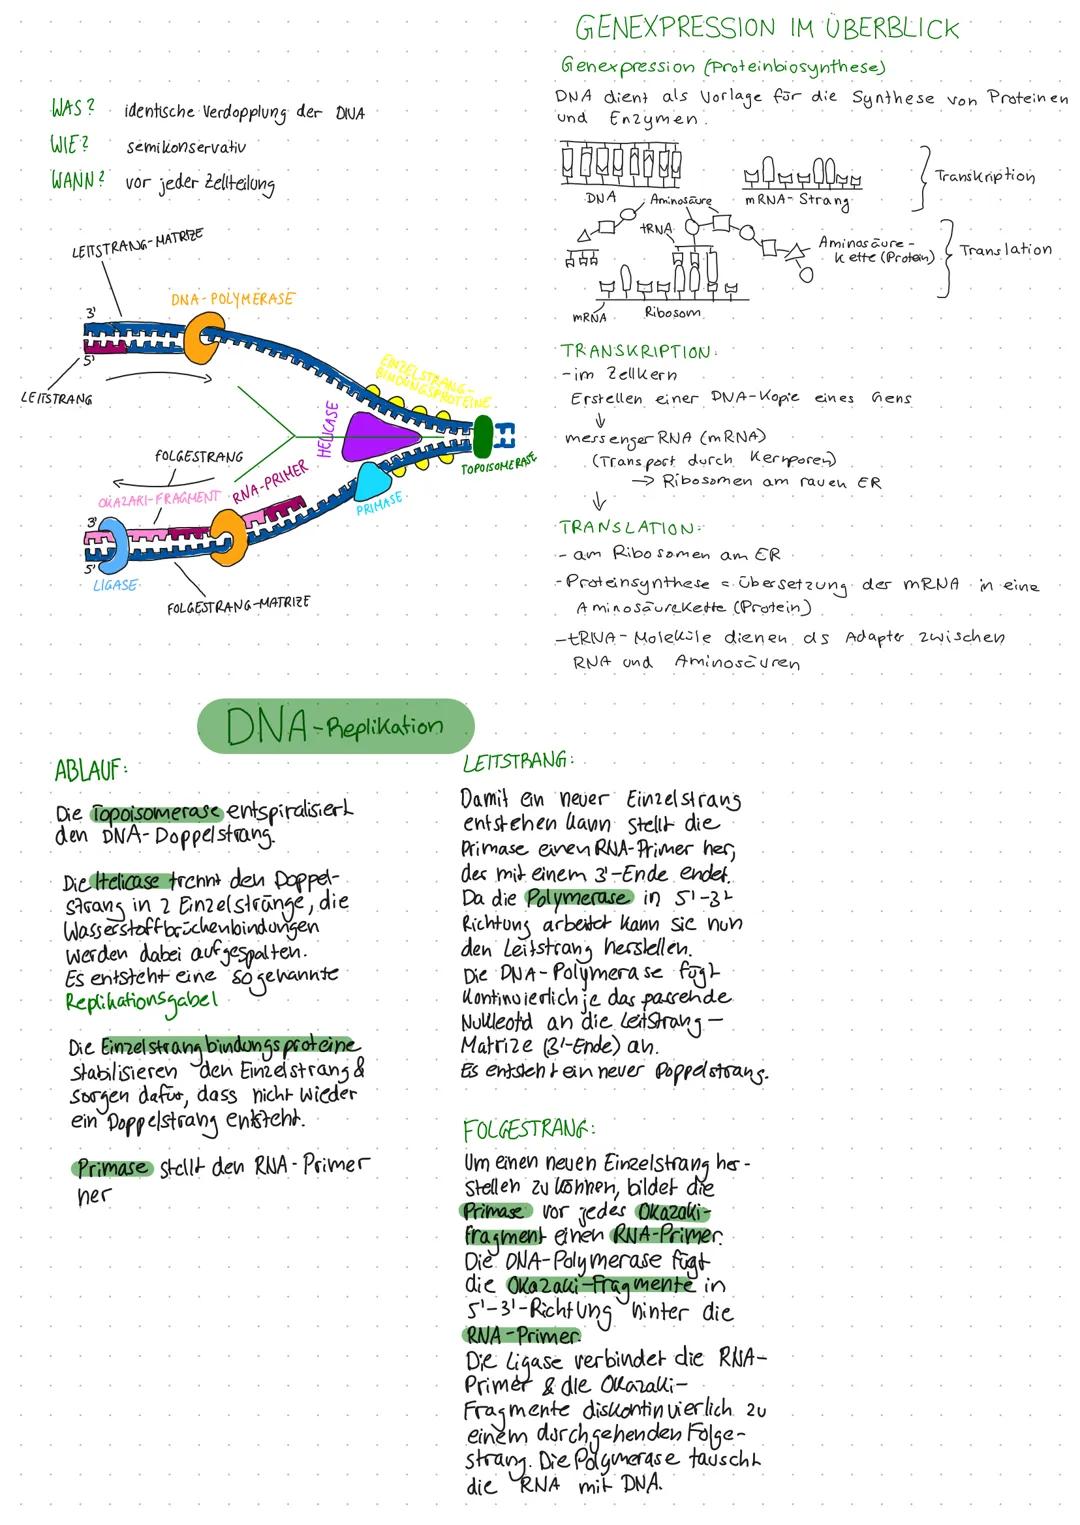 GENEXPRESSION IM ÜBERBLICK
Genexpression (Proteinbiosynthese)
DNA dient als Vorlage für die Synthese von Proteinen
und Enzymen.
DNA
mRNA-Strang
Transkription
Aminosäure
tRNA
Aminosäure-
kette (Protein)
Translation
mRNA
Ribosom
TRANSKRIPTION:
-im Zellkern
Erstellen einer DNA-Kopie eines Gens
↓
messenger RNA (mRNA)
(Transport durch Kernporen)
→ Ribosomen am rauen ER
↓
TRANSLATION:
- am Ribosomen am ER
-Proteinsynthese = Übersetzung der mRNA in eine
Aminosäurekette (Protein)
-tRNA-Moleküle dienen als Adapter zwischen
RNA und Aminosäuren
WAS? identische Verdopplung der DNA
WIE? semikonservativ
WANN? vor jeder Zellteilung
LEITSTRANG-MATRIZE
DNA-POLYMERASE
3'
5'
LEITSTRANG
EINZELSTRANG-
BINDUNGSPROTEINE
HELICASE
TOPOISOMERASE
FOLGESTRANG
OKAZAKI-FRAGMENT
RNA-PRIMER
PRIMASE
3'
5'
LIGASE
FOLGESTRANG-MATRIZE
DNA-Replikation
ABLAUF:
Die Topoisomerase entspiralisiert
den DNA-Doppelstrang.
Die Helicase trennt den Doppel-
strang in 2 Einzelstränge, die
Wasserstoffbrückenbindungen
werden dabei aufgespalten.
Es entsteht eine sogenannte
Replikationsgabel
Die Einzelstrangbindungsproteine
stabilisieren den Einzelstrang &
sorgen dafür, dass nicht wieder
ein Doppelstrang entsteht.
Primase stellt den RNA-Primer
her
LEITSTRANG:
Damit ein neuer Einzelstrang
entstehen kann stellt die
Primase einen RNA-Primer her,
der mit einem 3'-Ende endet.
Da die Polymerase in 5'-3'-
Richtung arbeitet kann sie nun
den Leitstrang herstellen.
Die DNA-Polymerase fügt
kontinuierlich je das passende
Nukleotid an die Leitstrang-
Matrize (3'-Ende) an.
Es entsteht ein neuer Doppelstrang.
FOLGESTRANG:
Um einen neuen Einzelstrang her-
stellen zu können, bildet die
Primase vor jedes Okazaki-
Fragment einen RNA-Primer.
Die DNA-Polymerase fügt
die Okazaki-Fragmente in
5'-3'-Richtung hinter die
RNA-Primer.
Die Ligase verbindet die RNA-
Primer & die Okazaki-
Fragmente diskontinuierlich zu
einem durchgehenden Folge-
strang. Die Polymerase tauscht
die RNA mit DNA.